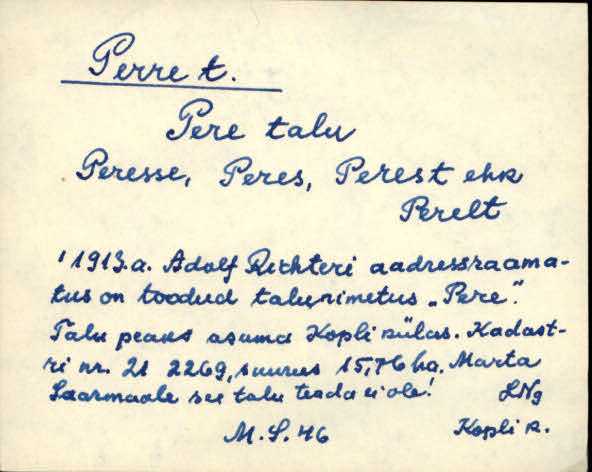 Perre t.
Pere talu
Peresse, Peres, Perest ehk
Perelt
1913.a. Adolf Richteri aadressraama-
tus on toodud talunimetus „Pere”.
Talu peaks asuma Kopli külas. Kadast-
ri nr. 21 2269, suurus 15,76 ha. Marta
Saarmaale see talu teada ei ole! LNg
M.S. 46 Kopli k.